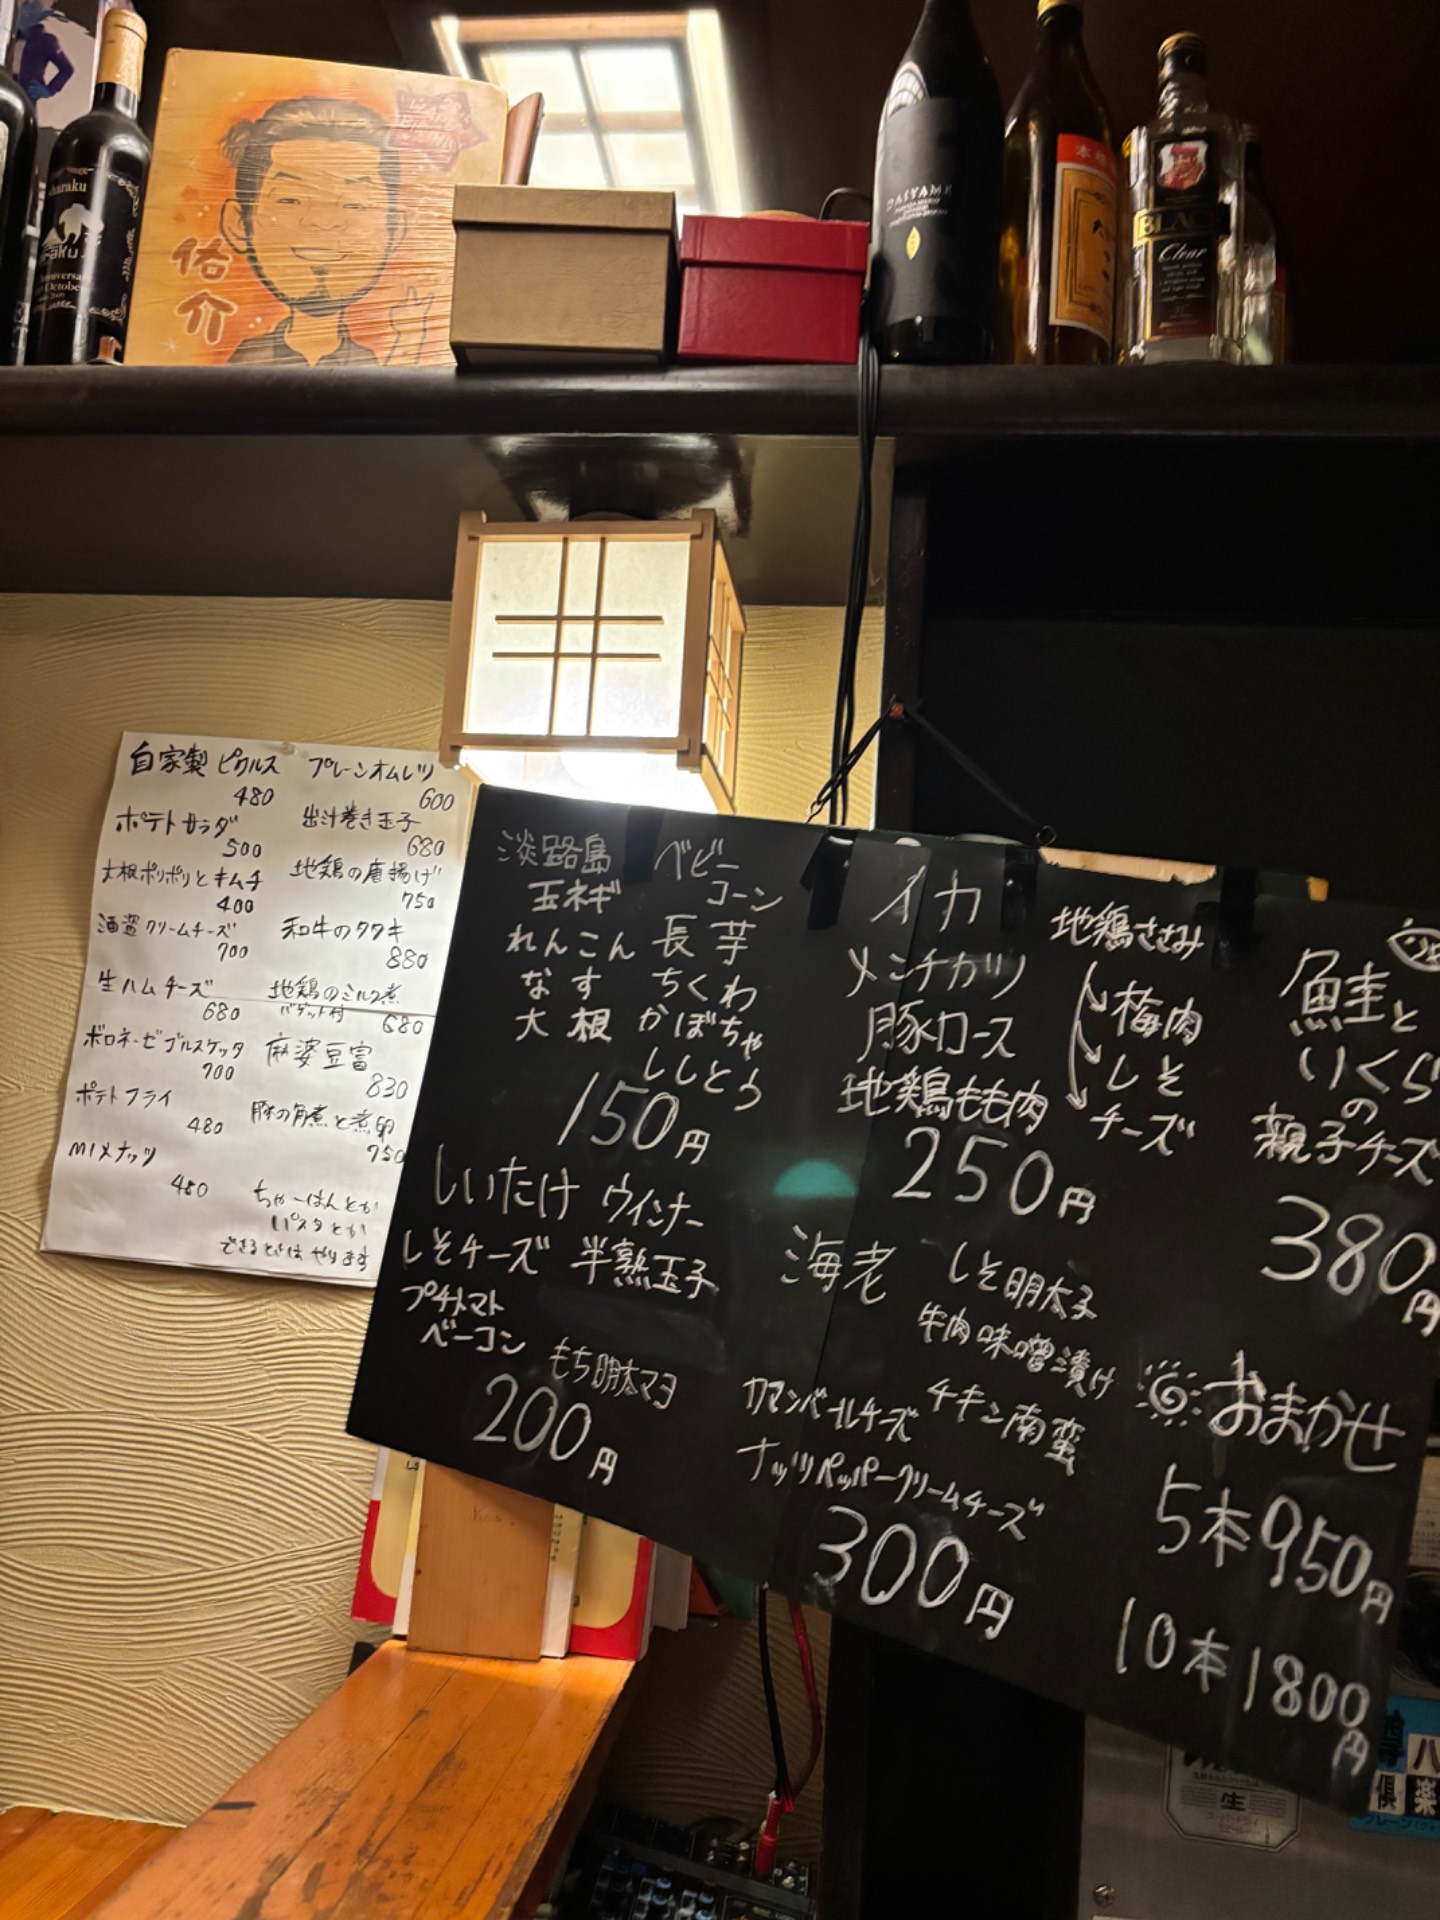 sharaku
佑介
DAIYAME
BLACK
Clear
自家製 ピクルス
480
ポテトサラダ
500
大根ポリポリとキムチ
400
酒盗クリームチーズ
700
生ハムチーズ
680
ボロネーゼゴルスケッタ
700
ポテトフライ
480
MIXナッツ
480
プレーンオムレツ
600
出汁巻き玉子
680
地鶏の唐揚げ
750
和牛のタタキ
880
地鶏のミルク煮
バゲット付 680
麻婆豆富
830
豚の角煮と煮卵
750
ちゃーはんとか
パスタとか
できるときは やります
淡路島
玉ネギ
ベビー
コーン
れんこん 長芋
なす ちくわ
大根 かぼちゃ
ししとう
150円
しいたけ ウインナー
しそチーズ 半熟玉子
プチトマト
ベーコン もち明太マヨ
200円
イカ
メンチカツ
豚ロース
地鶏もも肉
250円
地鶏ささみ
梅肉
しそ
チーズ
鮭と
いくら
の
親子チーズ
380円
海老 しそ明太子
牛肉味噌漬け
カマンベールチーズ チキン南蛮
ナッツペッパークリームチーズ
300円
おまかせ
5本950円
10本1800円
生
八
倶楽